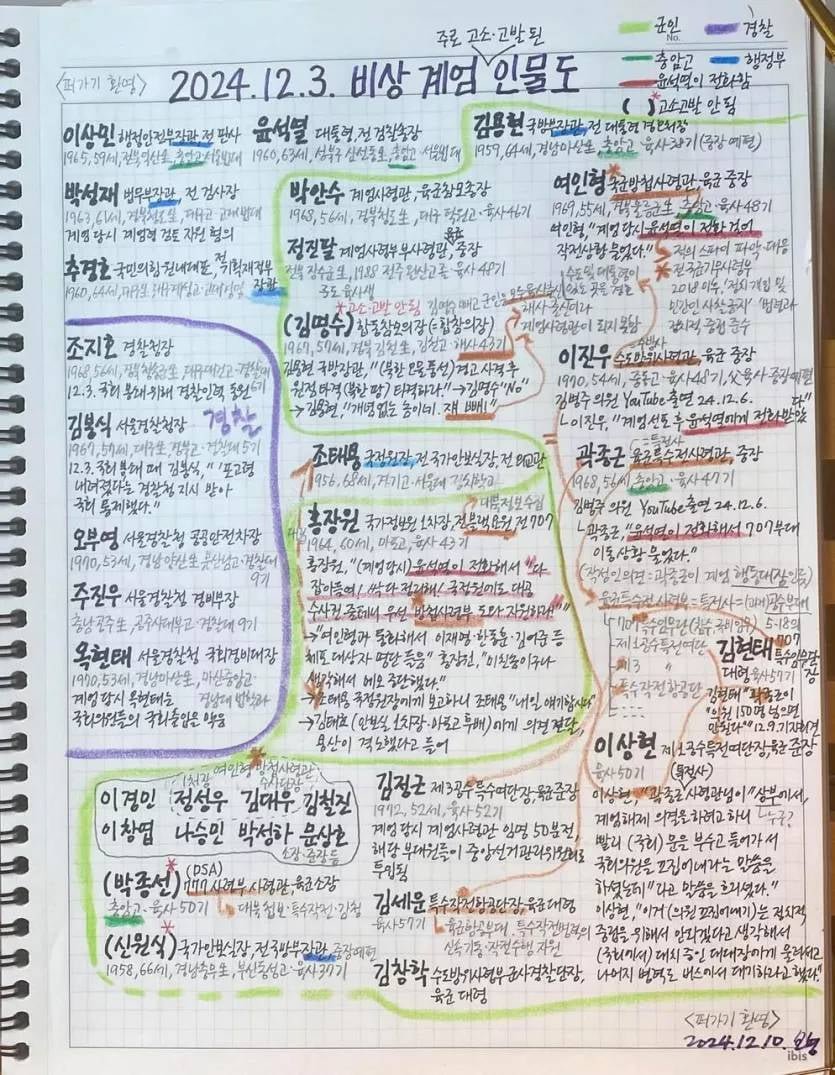 주로 고소·고발된
군인
경찰
충암고
행정부
윤석열이 전화함
( )* 고소고발 안 됨
No.
<퍼가기 환영>
2024.12.3. 비상 계엄 인물도
이상민 행정안전부장관, 전 판사
1965, 59세, 전북익산生, 충암고·서울법대
윤석열 대통령, 전 검찰총장
1960, 63세, 성북구 삼선동生, 충암고·서울법대
김용현 국방부장관, 전 대통령 경호처장
1959, 64세, 경남마산生, 충암고·육사38기(중장 예편)
박성재 법무부장관, 전 검사장
1963, 61세, 경북청도生, 대구고·고려법대
계엄 당시 계엄령 검토 지원 혐의
추경호 국민의힘 원내대표, 전 기획재정부장관
1960, 64세, 대구生, 대구계성고·고려상경
박안수 계엄사령관, 육군참모총장
1968, 56세, 경북청도生, 대구 덕원고·육사46기
정진팔 계엄사령부부사령관, 육군중장
전북 장수군生, 1988 전주 완산고졸·육사48기
3도 육사생
*고소·고발 안 됨
(김명수) 합동참모의장(=합참의장)
1967, 57세, 경북 김천生, 김천고·해사43기
김용현 국방장관, "(북한 오물풍선) 경고 사격 후
원점 타격(북한 땅) 타격하라." → 김명수 "No"
→ 김용현, "개념없는 놈이네. 쟤 빼!"
김명수 빼고 군인은 모두 육사출신
해사 출신이라
계엄사령관이 되지 못함
여인형 국군방첩사령관, 육군 중장
1969, 55세, 경북울릉군生, 충암고·육사48기
여인형, "계엄 당시 윤석열이 전화 걸어
작전상황 물었다."
→ 적의 스파이 파악·대응
* 전 국군기무사령부
2018 이후, '정치 개입 및
민간인 사찰금지' 법령과
정치적 중립 준수
이진우 수도방위사령관, 육군 중장
=수방사
1970, 54세, 중동고·육사48기, 父육사·중장예편
김병주 의원 YouTube 출연 24.12.6.
ㄴ 이진우, "계엄선포 후 윤석열에게 전화받았다"
곽종근 육군특수전사령관, 중장
=특전사
1968, 56세, 충남고·육사47기
김병주 의원 YouTube 출연 24.12.6.
ㄴ 곽종근, "윤석열이 전화해서 707부대
이동상황 물었다."
(작성인의견 : 곽종근이 계엄 행동대장인듯)
육군특수전사령부 = 특전사 = (과거)공수부대
707특수임무단
5·18의
제1공수특전여단
제3 〃
특수작전항공단
김현태 707특수임무단장
대령, 육사57기
김현태 "곽종근이
'의원 150명 넘으면
안된다'" 12.9.기자회견
이상현 제1공수특전여단장, 육군 준장
육사50기 (특전사)
이상현, "곽종근사령관님이 "상부에서,
계엄해제 의결을 하려고 하니
ㄴ누구?
빨리 (국회) 문을 부수고 들어가서
국회의원을 끄집어내라는 말씀을
하셨는데" 라고 말씀을 흐리셨다."
이상현, "이거 (의원 끄집어내기)는 정치적
중립을 위해서 안되겠다고 생각해서
(국회에서) 대치 중인 대대장에게 물러서고
나머지 병력도 버스에서 대기하라고 했다."
조지호 경찰청장
1968, 56세, 경북청송生, 대구대건고·경찰대6기
12.3. 국회 봉쇄 위해 경찰인력 동원
김봉식 서울경찰청장
경찰
1967, 57세, 대구生, 경북고·경찰대 5기
12.3. 국회 봉쇄 때 김봉식, "'포고령
내려졌다'는 경찰청 지시 받아
국회 통제했다."
오부명 서울경찰청 공공안전차장
1970, 53세, 경남양산生, 부산남고·경찰대9기
주진우 서울경찰청 경비부장
충남공주生, 공주사대부고·경찰대 9기
목현태 서울경찰청 국회경비대장
1970, 53세, 경남마산生, 마산중앙고·
경남대 법학과
계엄 당시 목현태는
국회의원들의 국회출입을 막음
조태용 국정원장, 전 국가안보실장, 전 외교관
1956, 68세, 경기고·서울대 정치학과
대북정보수집
홍장원 국가정보원 1차장, 전 블랙요원, 전 707
1964, 60세, 마산고, 육사43기
홍장원, "(계엄 당시) 윤석열이 전화해서 "다
잡아들여! 싹 다 정리해! 국정원에도 대공
수사권 줄테니 우선 방첩사령부 도와 지원하라!""
→ "여인형과 통화해서 이재명·한동훈·김어준 등
체포 대상자 명단 들음" 홍장원, "미친놈이구나
생각해서 메모 중단했다."
→ 조태용 국정원장에게 보고하니 조태용 "내일 얘기합시다"
→ 김태효(안보실 1차장·마산고 후배)에게 의견 전달,
용산이 격노했다고 들어
여인형 방첩사령관
1처장
수사단장
이경민 정성우 김대우 김철진
이창엽 나승민 박성하 윤상호
소장·준장 등
(박종선)* (DSA) 777사령부 사령관, 육군소장
충암고·육사50기
→ 대북첩보·특수작전·감청
(신원식)* 국가안보실장, 전 국방부장관, 중장예편
1958, 66세, 경남통영生, 부산동성고·육사37기
김정근 제3공수특전여단장, 육군준장
1972, 52세, 육사52기
계엄 당시 계엄사령관 임명 50분전,
해당 부대원들이 중앙선거관리위원회로
투입됨
김세운 특수작전항공단장, 육군 대령
육사57기
ㄴ 육군항공부대, 특수작전병력의
신속기동·작전수행 지원
김창학 수도방위사령부 군사경찰단장,
육군 대령
<퍼가기 환영>
2024.12.10.
ibis